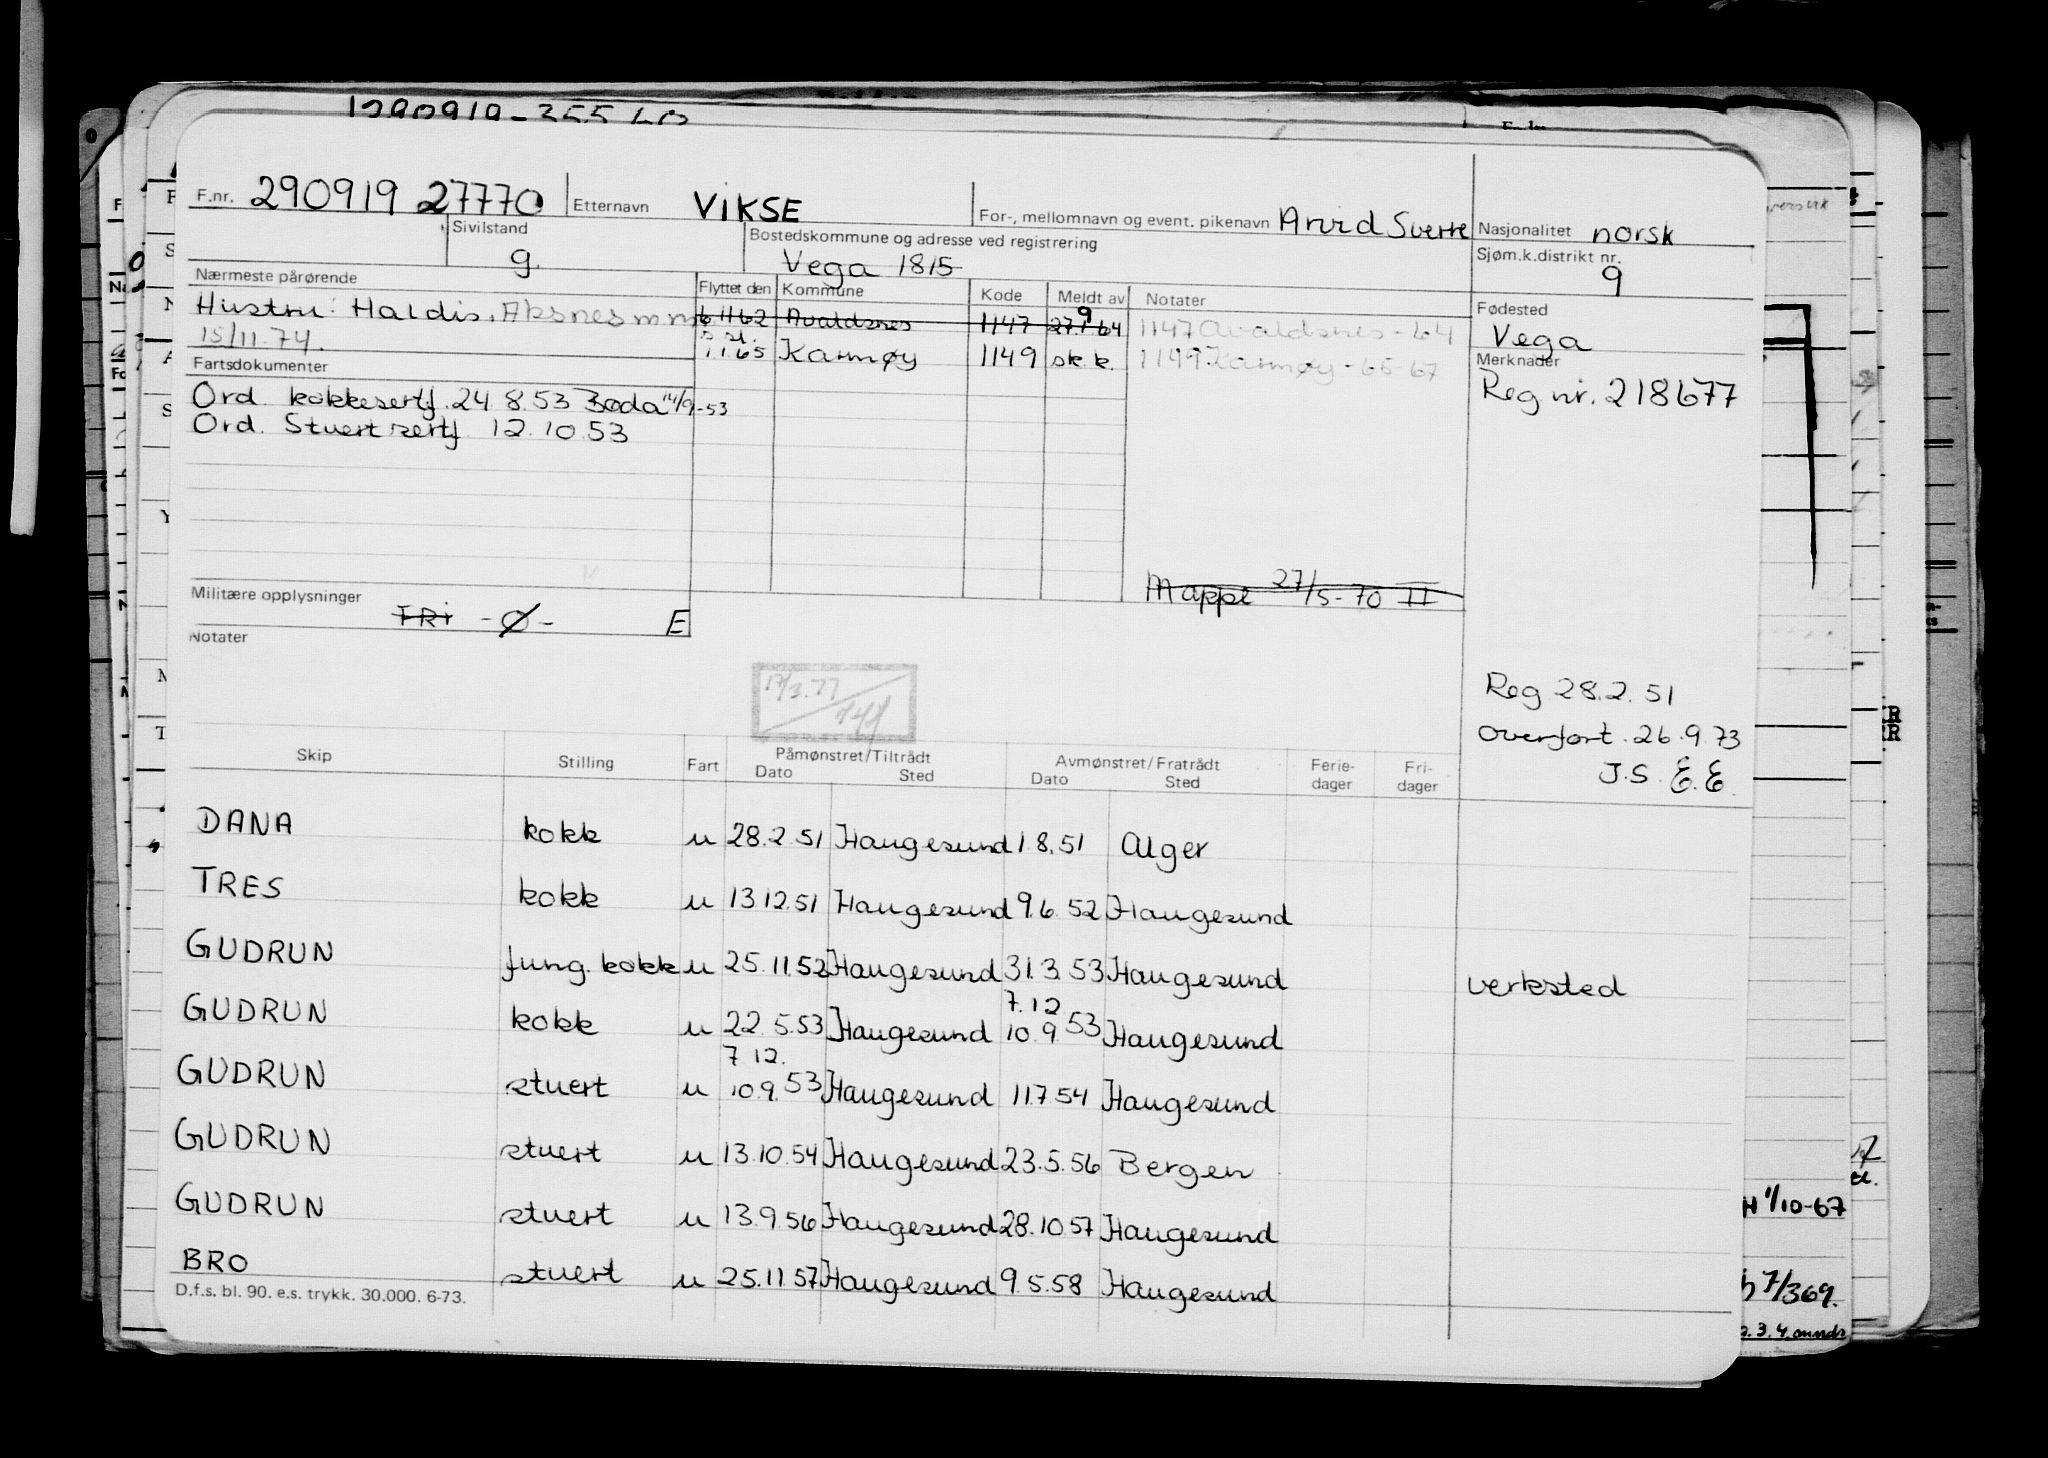 1290919-355
F.nr. 290919 27770 Etternavn VIKSE For-, mellomnavn og event. pikenavn Arvid Sverre Nasjonalitet norsk
Sivilstand g. Bostedskommune og adresse ved registrering Vega 1815 Sjøm.k.distrikt nr. 9
Nærmeste pårørende Flyttet den Kommune Kode Meldt av Notater Fødested
Hustru: Haldis, Aksnes m m 6.11 62 Avaldsnes 1147 27.1.64 9 1147 Avaldsnes - 64 Vega
15/11.74. 1.1.65 Karmøy 1149 sk.k. 1149 Karmøy - 65-67
Fartsdokumenter Merknader
Ord. kokkesertf. 24.8.53 Bodø 14/9-53 Reg nr. 218677
Ord. Stuertsertf. 12.10.53
Mappe 27/5-70 II
Militære opplysninger FRI -Ø- E
Notater
17/3.77
Reg 28.2.51
Overført. 26.9.73
J.S. E.E.
Skip Stilling Fart Påmønstret/Tiltrådt Avmønstret/Fratrådt Ferie-dager Fri-dager
Dato Sted Dato Sted
DANA kokk u 28.2.51 Haugesund 1.8.51 Alger
TRES kokk u 13.12.51 Haugesund 9.6.52 Haugesund
GUDRUN fung. kokk u 25.11.52 Haugesund 31.3.53 Haugesund verksted
GUDRUN kokk u 22.5.53 Haugesund 7.12 10.9 53 Haugesund
GUDRUN stuert u 7.12. 10.9. 53 Haugesund 11.7.54 Haugesund
GUDRUN stuert u 13.10.54 Haugesund 23.5.56 Bergen
GUDRUN stuert u 13.9.56 Haugesund 28.10.57 Haugesund
BRO stuert u 25.11.57 Haugesund 9.5.58 Haugesund
D.f.s. bl. 90. e.s. trykk. 30.000. 6-73.
1/10-67
7/369.